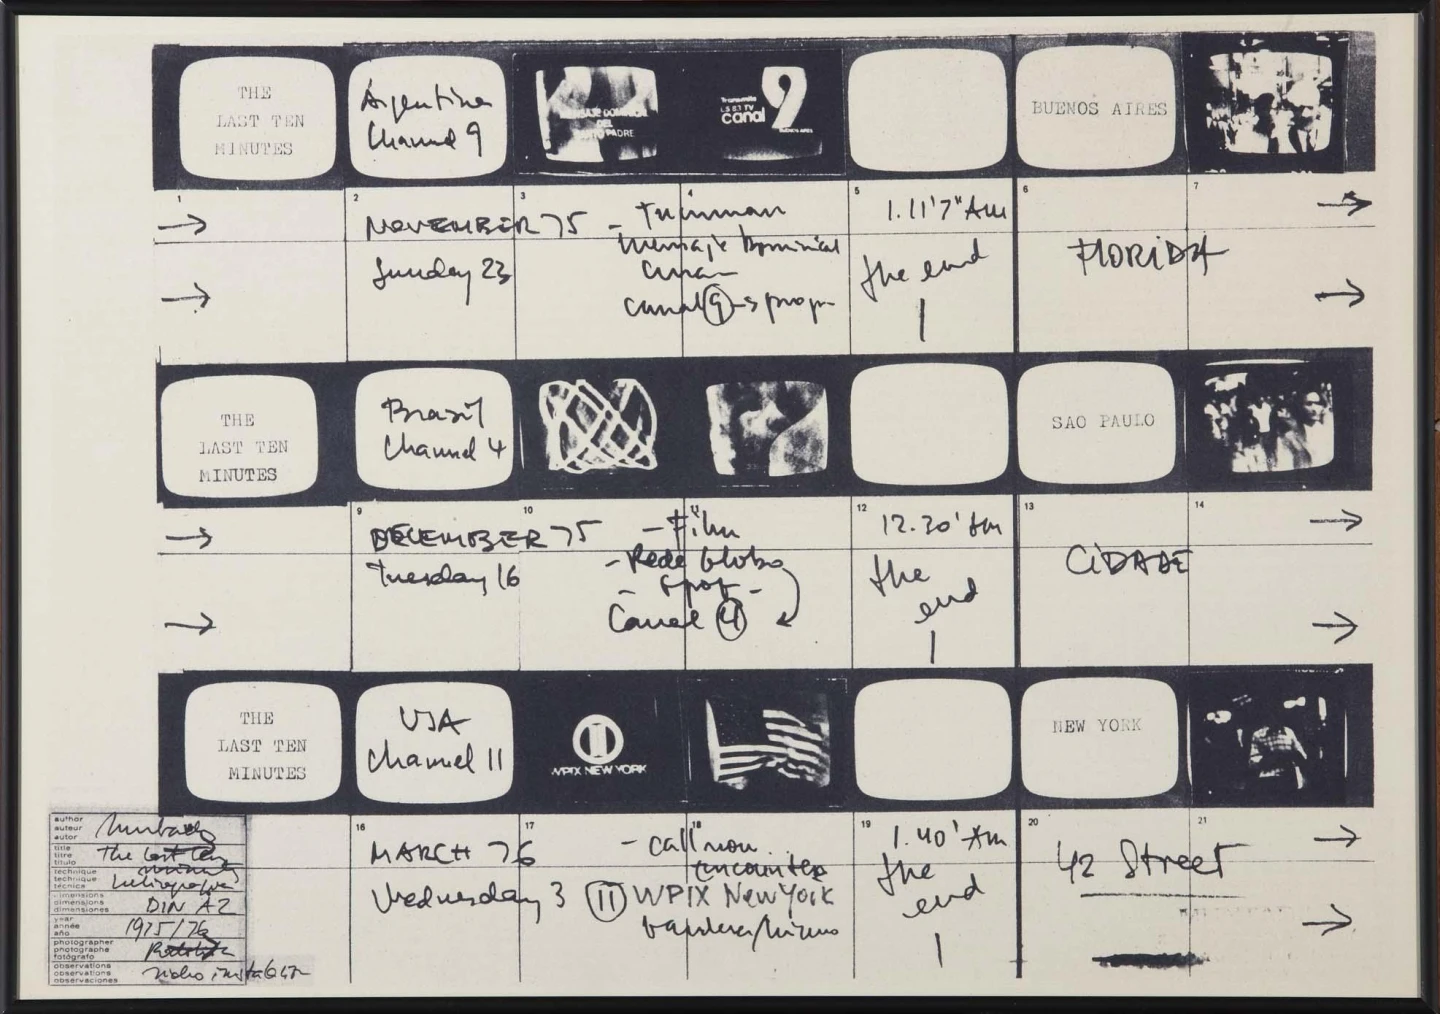 THE
LAST TEN
MINUTES
Argentina
Channel 9
MENSAJE DOMINICAL
DEL
PADRE
Transmite
LS 83 TV
canal 9
BUENOS AIRES
BUENOS AIRES
1
2
3
4
5
6
7
NOVEMBER 75
Sunday 23
mensaje Dominical
canal 9
1.11'7" AM
the end
FLORIDA
THE
LAST TEN
MINUTES
Brasil
Channel 4
SAO PAULO
9
10
11
12
13
14
DECEMBER 75
Tuesday 16
- Film
- Rede Globo
- Spot -
Canal 4
12.30' AM
the
end
CIDADE
THE
LAST TEN
MINUTES
USA
Channel 11
WPIX NEW YORK
NEW YORK
16
17
18
19
20
21
MARCH 76
Wednesday 3
- call now
encounter
11 WPIX New York
bandera/himno
1.40' AM
the
end
42 Street
author
auteur
autor
title
titre
título
The last ten
minutes
technique
technique
técnica
dimensions
dimensions
dimensiones
DIN A2
year
année
año
1975/76
photographer
photographe
fotógrafo
observations
observations
observaciones